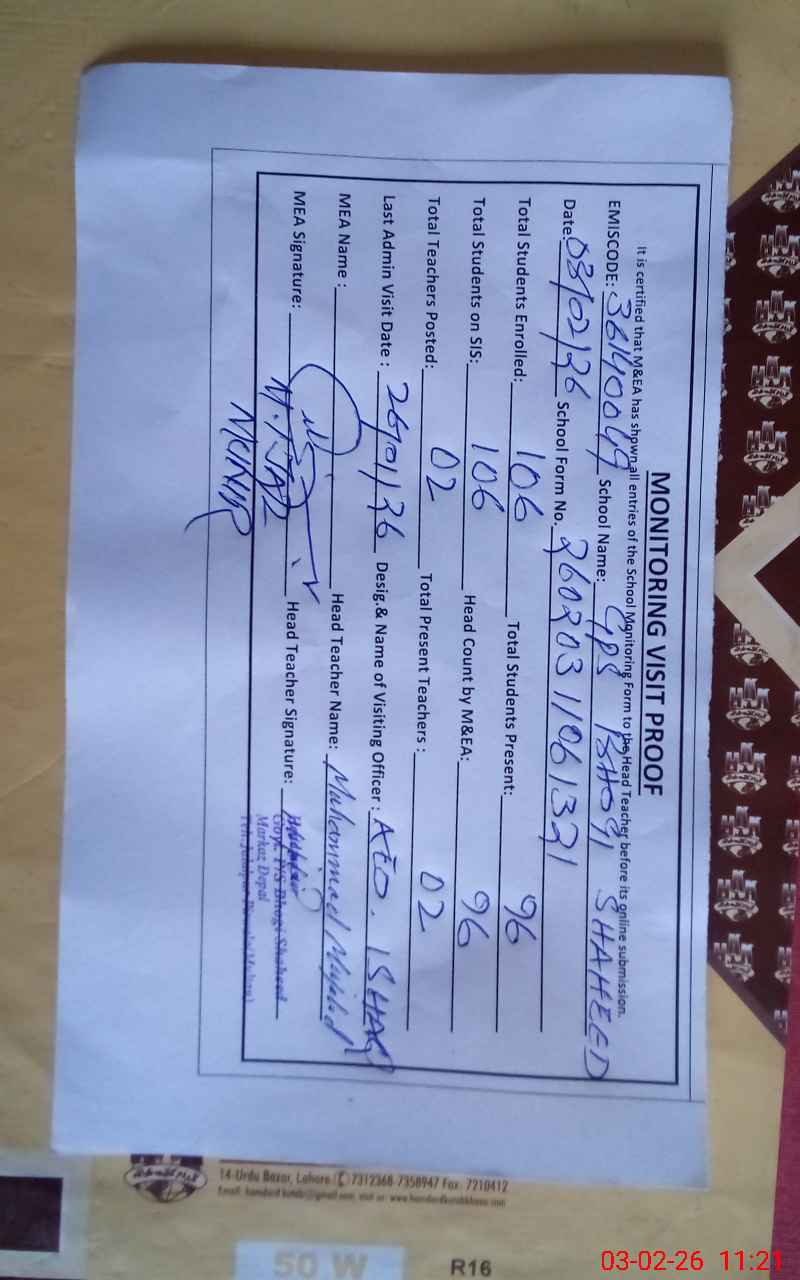 MONITORING VISIT PROOF
It is certified that M&EA has shown all entries of the School Monitoring Form to the Head Teacher before its online submission.
EMISCODE: 36140049 School Name: GPS BHOGI SHAHEED
Date: 03/02/26 School Form No. 26020311061321
Total Students Enrolled: 106 Total Students Present: 96
Total Students on SIS: 106 Head Count by M&EA: 96
Total Teachers Posted: 02 Total Present Teachers : 02
Last Admin Visit Date : 26/01/26 Desig.& Name of Visiting Officer : AEO. ISHAQ
MEA Name : Head Teacher Name: Muhammad
MEA Signature: Head Teacher Signature:
Govt. P/S Bhogi Shaheed
Markaz Depal
14-Urdu Bazar, Lahore 7312368-7358947 Fax: 7210412
50 W
R16
03-02-26 11:21